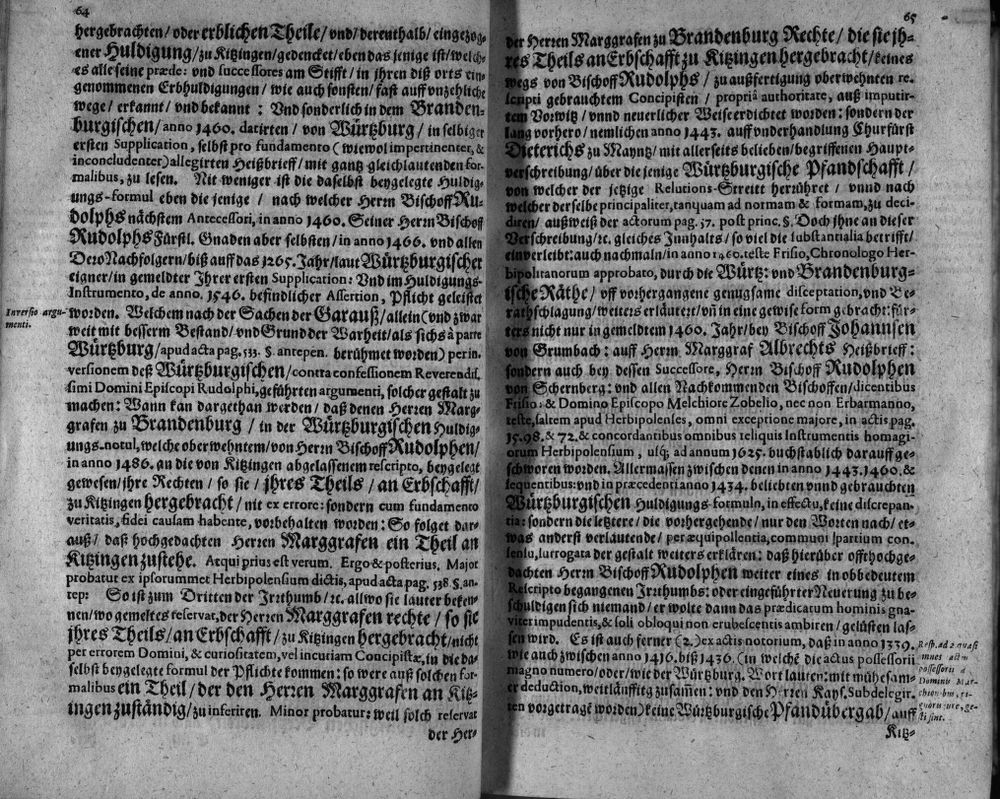 64
hergebrachten/ oder erblichen Theile/ und/ derenthalb/ eingezog-
ener Huldigung/ zu Kitzingen/ gedencket/ eben das jenige ist/ welch-
es alle seine præde: vnd successores am Stifft/ in jhren diß orts ein-
genommenen Erbhuldigungen/ wie auch sonsten/ fast auff vnzehliche
wege/ erkannt/ vnd bekannt: Vnd sonderlich in dem Branden-
burgischen/ anno 1460. datirten/ von Würtzburg/ in selbiger
ersten Supplication, selbst pro fundamento (wiewol impertinenter, &
inconcludenter) allegirten Heißbrieff/ mit gantz gleichlautenden for-
malibus, zu lesen. Nit weniger ist die daselbst beygelegte Huldig-
ungs-formul eben die jenige/ nach welcher Herrn Bischoff Ru-
dolphs nächstem Antecessori, in anno 1460. Seiner Herrn Bischoff
Rudolphs Fürstl. Gnaden aber selbsten/ in anno 1466. vnd allen
Dero Nachfolgern/ biß auff das 1265. Jahr/ laut Würtzburgischer
eigner/ in gemeldter Ihrer ersten Supplication: Vnd im Huldigungs-
Instrumento, de anno. 1546. befindlicher Assertion, Pflicht geleistet
worden. Welchem nach der Sachen der Garauß/ allein (vnd zwar
Inversio argu-
menti.
weit mit besserm Bestand/ vnd Grund der Warheit/ als sichs à parte
Würtzburg/ apud acta pag. 533. §. antepen. berühmet worden) per in-
versionem deß Würtzburgischen/ contra confessionem Reverendis-
simi Domini Episcopi Rudolphi, geführten argumenti, solcher gestalt zu
machen: Wann kan dargethan werden/ daß denen Herren Marg-
grafen zu Brandenburg/ in der Würtzburgischen Huldig-
ungs-notul, welche oberwehntem/ von Herrn Bischoff Rudolphen/
in anno 1486. an die von Kitzingen abgelassenem rescripto, beygelegt
gewesen/ jhre Rechten/ so sie/ jhres Theils/ an Erbschafft/
zu Kitzingen hergebracht/ nit ex errore: sondern cum fundamento
veritatis, fidei causam habente, vorbehalten worden: So folget dar-
auß/ daß hochgedachten Herren Marggrafen ein Theil an
Kitzingen zustehe. Atqui prius est verum. Ergo & posterius. Major
probatur ex ipsorummet Herbipolensium dictis, apud acta pag. 538. §. an-
tep: So ist zum Dritten der Irrthumb/ rc. allwo sie lauter beken-
nen/ wo gemeltes reservat, der Herren Marggrafen rechte/ so sie
jhres Theils/ an Erbschafft/ zu Kitzingen hergebracht/ nicht
per errorem Domini, & curiositatem, vel incuriam Concipistæ, in die da-
selbst beygelegte formul der Pflichte kommen: so were auß solchen for-
malibus ein Theil/ der den Herren Marggrafen an Kitz-
ingen zuständig/ zu inferiren. Minor probatur: weil solch reservat
der Her-
65
der Herren Marggrafen zu Brandenburg Rechte/ die sie jh-
res Theils an Erbschafft zu Kitzingen hergebracht/ keines
wegs von Bischoff Rudolphs/ zu außfertigung oberwehnten re-
scripti gebrauchtem Concipisten/ propriâ authoritate, auß imputir-
tem Vorwitz/ vnnd neuerlicher Weise erdichtet worden: sondern der
lang vorhero/ nemlichen anno 1443. auff vnderhandlung Churfürst
Dieterichs zu Mayntz/ mit allerseits belieben/ begriffenen Haupt-
verschreibung/ über die jenige Würtzburgische Pfandschafft/
von welcher der jetzige Relutions-Streitt herrühret/ vnnd nach
welcher derselbe principaliter, tanquam ad normam & formam, zu deci-
diren/ außweiß der actorum pag. 37. post princ. §. Doch jhne an dieser
Verschreibung/ rc. gleiches Innhalts/ so viel die substantialia betrifft/
einverleibt: auch nachmaln/ in anno 1460. teste Frisio, Chronologo Her-
bipolitanorum approbato, durch die Würtz: vnd Brandenburg-
ische Räthe/ vff vorhergangene genugsame disceptation, vnd Be-
rathschlagung/ weiters erläutert/ vñ in eine gewise form gebracht: für-
ters nicht nur in gemeldtem 1460. Jahr/ bey Bischoff Johannsen
von Grumbach: auff Herrn Marggraf Albrechts Heißbrieff:
sondern auch bey dessen Successore, Herrn Bischoff Rudolphen
von Schernberg: vnd allen Nachkommenden Bischoffen/ dicentibus
Frisio: & Domino Episcopo Melchiore Zobelio, nec non Erbarmanno,
teste, saltem apud Herbipolenses, omni exceptione majore, in actis pag.
15. 98. & 72. & concordantibus omnibus reliquis Instrumentis homagi-
orum Herbipolensium, usq; ad annum 1625. buchstablich darauff ge-
schworen worden. Allermassen zwischen denen in anno 1443. 1460. &
sequentibus: vnd in præcedenti anno 1434. beliebten vnnd gebrauchten
Würtzburgischen Huldigungs-formuln, in effectu, keine discrepan-
tia: sondern die letztere/ die vorhergehende/ nur den Worten nach/ et-
was anderst verlautende/ per æquipollentia, communi partium con-
sensu, surrogata der gestalt weiters erklären: daß hierüber offthochge-
dachten Herrn Bischoff Rudolphen weiter eines in obbedeutem
Rescripto begangenen Irrthumbs: oder eingeführter Neuerung zu be-
schuldigen sich niemand/ er wolte dann das prædicatum hominis gna-
viter impudentis, & soli obloqui non erubescentis ambiren/ gelüsten las-
sen wird. Es ist auch ferner (2.) ex actis notorium, daß in anno 1339.
wie auch zwischen anno 1416. biß 1436. (in welche die actus possessorii
magno numero/ oder/ wie der Würtzburg. Wort lauten: mit mühesam-
er deduction, weitläufftig zusam̃en: vnd den Herren Kays. Subdelegir-
ten vorgetragt worden) keine Würtzburgische Pfandübergab/ auff
Resp. ad 2 quasi
possessorii à
Dominis Mar-
Kitz-